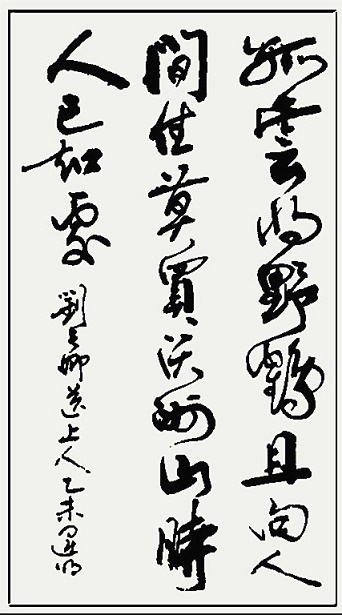 孤雲將野鶴且向人
間住莫買沃洲山時
人已知處
劉長卿送上人乙未